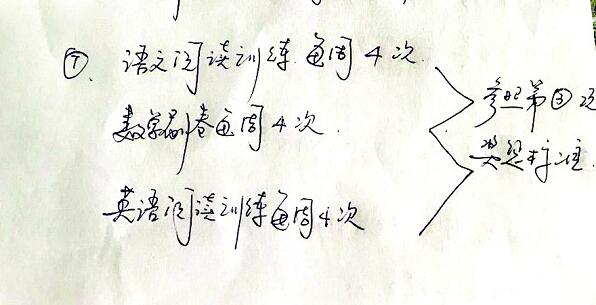 ⑦. 语文阅读训练每周4次.
数学刷卷每周4次.
英语阅读训练每周4次
参照第③项
奖惩标准.